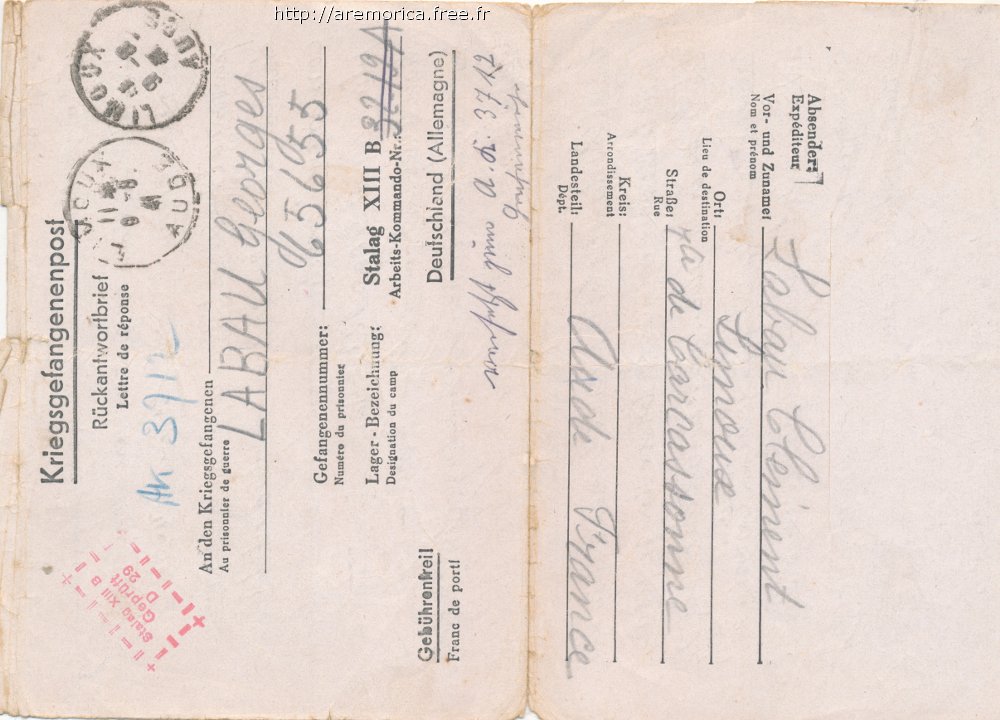 http://aremorica.free.fr
Kriegsgefangenenpost
Rückantwortbrief
Lettre de réponse
LIMOUX
AUDE
LIMOUX
AUDE
AK 3712
Stalag XIII B
Geprüft
D 29
An den Kriegsgefangenen
Au prisonnier de guerre
LABAU Georges
Gefangenennummer:
Numéro du prisonnier
65655
Lager-Bezeichnung:
Designation du camp
Stalag XIII B
Arbeits-Kommando-Nr.:
Deutschland (Allemagne)
Gebührenfrei!
Franc de port!
zum A.K. 3712
Absender:
Expéditeur
Vor- und Zuname:
Nom et prénom
Labau Clément
Ort:
Lieu de destination
Limoux
Straße:
Rue
de Carcassonne
Kreis:
Arrondissement
Landesteil:
Dépt.
Aude France